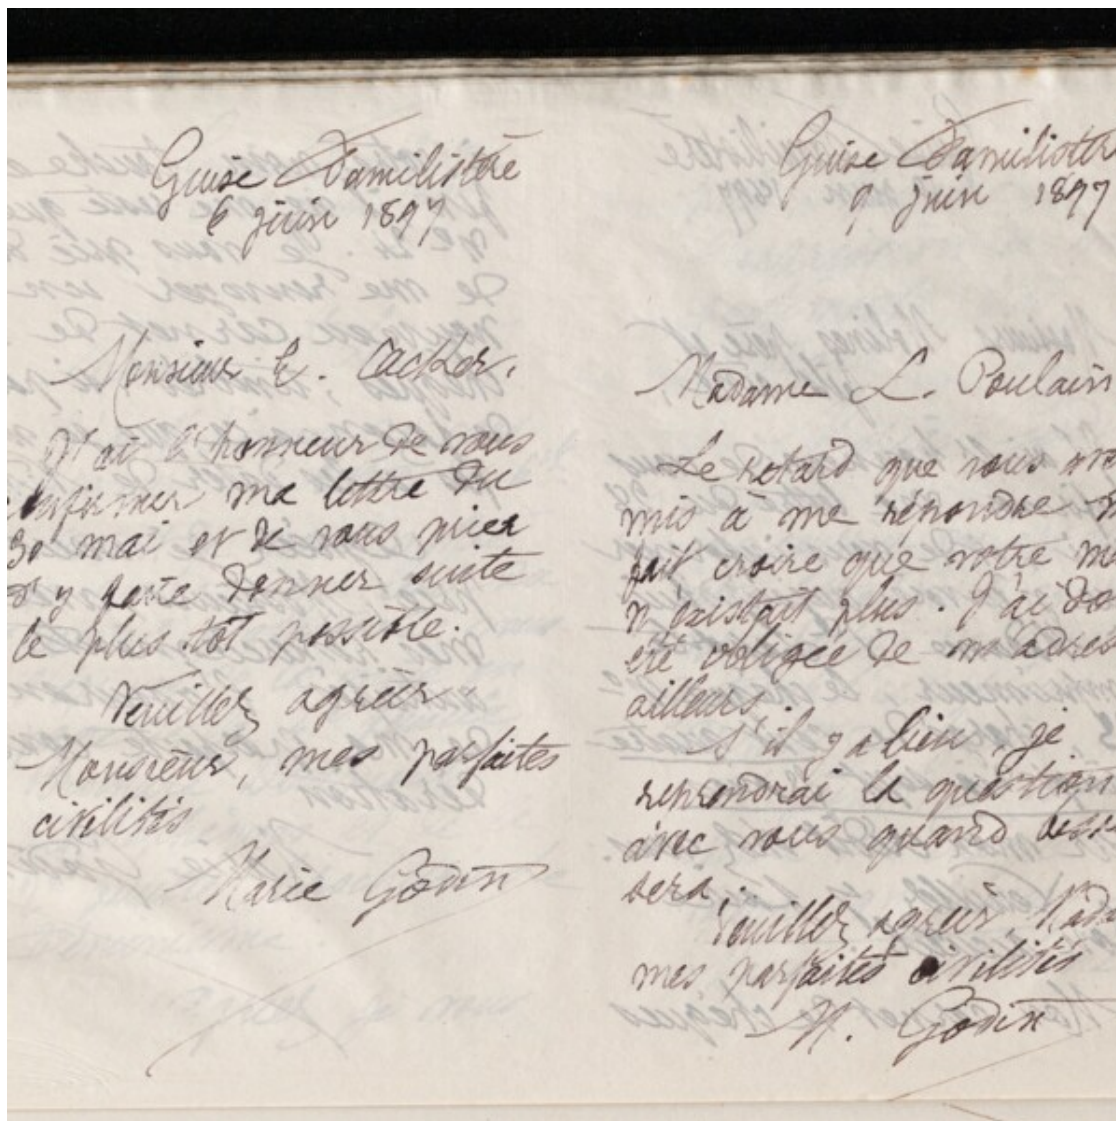 Guise Familistère
6 juin 1897
Monsieur E. Cacker.
J'ai l'honneur de vous
confirmer ma lettre du
30 mai et de vous prier
d'y faire donner suite
le plus tôt possible.
Veuillez agréer
Monsieur, mes parfaites
civilités
Marie Godin
Guise Familistère
9 juin 1897
Madame L. Poulain
Le retard que vous
mis à me répondre
fait croire que votre
n'existait plus. J'ai
été obligée de
ailleurs.
S'il y a lieu, je
reprendrai la question
avec vous quand
sera.
Veuillez agréer,
mes parfaites civilités
M. Godin